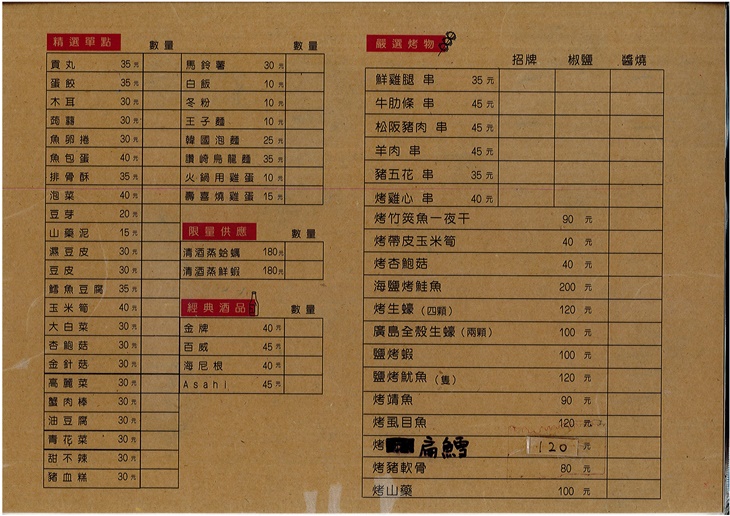 精選單點 數量
貢丸 35元
蛋餃 35元
木耳 30元
蒟蒻 30元
魚卵捲 30元
魚包蛋 40元
排骨酥 35元
泡菜 40元
豆芽 20元
山藥泥 15元
濕豆皮 30元
豆皮 30元
鱈魚豆腐 35元
玉米筍 40元
大白菜 30元
杏鮑菇 30元
金針菇 30元
高麗菜 30元
蟹肉棒 30元
油豆腐 30元
青花菜 30元
甜不辣 30元
豬血糕 30元
數量
馬鈴薯 30元
白飯 10元
冬粉 10元
王子麵 10元
韓國泡麵 25元
讚崎烏龍麵 35元
火鍋用雞蛋 10元
壽喜燒雞蛋 15元
限量供應 數量
清酒蒸蛤蠣 180元
清酒蒸鮮蝦 180元
經典酒品 數量
金牌 40元
百威 45元
海尼根 40元
Asahi 45元
嚴選烤物
招牌 椒鹽 醬燒
鮮雞腿 串 35元
牛肋條 串 45元
松阪豬肉 串 45元
羊肉 串 45元
豬五花 串 35元
烤雞心 串 40元
烤竹筴魚一夜干 90元
烤帶皮玉米筍 40元
烤杏鮑菇 40元
海鹽烤鮭魚 200元
烤生蠔(四顆) 120元
廣島全殼生蠔(兩顆) 100元
鹽烤蝦 100元
鹽烤魷魚(隻) 120元
烤靖魚 90元
烤虱目魚 120元
烤 扁鱈 120元
烤豬軟骨 80元
烤山藥 100元